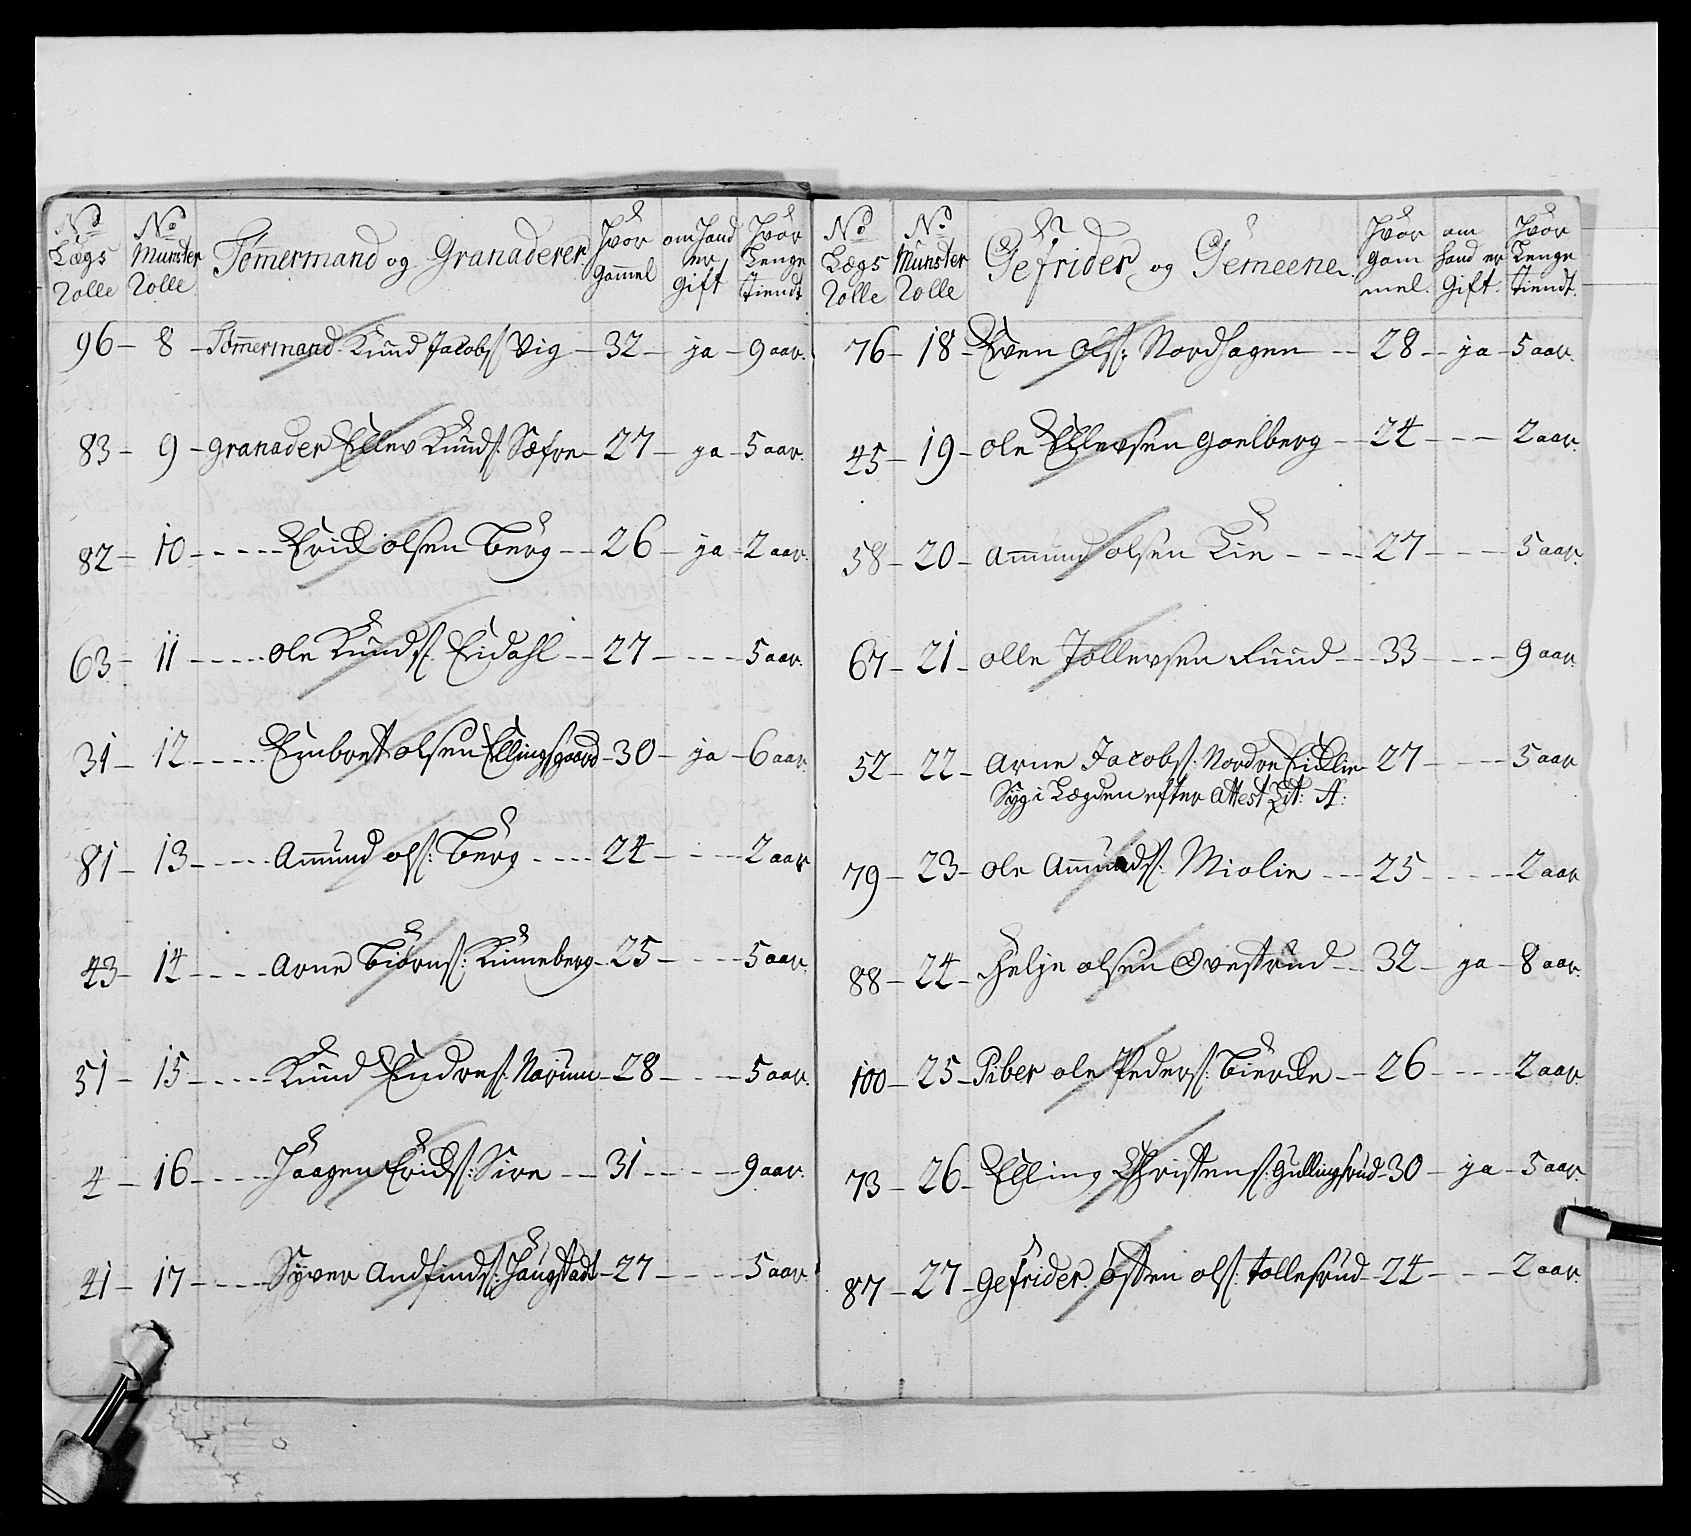 No Lægs Rolle | No Munster Rolle | Tømmermand og Granaderer | Hvor Gammel | om hand er Gift | Hvor Lenge tiendt
96 – 8 – Tømmermand Knud Jacobs: Vig – 32 – ja – 9 aar.
83 – 9 – Granader Ellev Knuds: Sæfre – 27 – ja – 5 aar.
82 – 10 – Erick olsen Berg – 26 – ja – 2 aar.
63 – 11 – ole Knuds: Eidahl – 27 – 5 aar.
31 – 12 – Embret olsen Ellingsgaard – 30 – ja – 6 aar
81 – 13 – Amund ols: Berg – 24 – 2 aar
43 – 14 – Arne Biørns: – 25 – 5 aar.
51 – 15 – Knud Endres: Narum – 28 – 5 aar.
4 – 16 – Haagen Ericks: Sire – 31 – 9 aar.
41 – 17 – Syver Andfinds: Haugstadt – 27 – 5 aar
No Lægs Rolle | No Munster Rolle | Gefrider og Gemeene | Hvor Gam mel. | om hand er Gift. | Hvor Lenge tiendt.
76 – 18 – Even Ols: Nordhagen – 28 – ja – 5 aar.
45 – 19 – ole Ellevsen Goelberg – 24 – 2 aar.
58 – 20 – Amund olsen Lie – 27 – 5 aar.
67 – 21 – olle Tollevsen Ruud – 33 – 9 aar.
52 – 22 – Arne Jacobs: Nordre Eicklie – 27 – 5 aar
Syg i Lægden efter Attest Lit: A:
79 – 23 – ole Amunds: Miølie – 25 – 2 aar
88 – 24 – Helje olsen Ovestrud – 32 – ja – 8 aar.
100 – 25 – Piber ole Peders: Biercke – 26 – 2 aar.
73 – 26 – Elling Christens: Gullingsrud – 30 – ja – 5 aar.
87 – 27 – Gefrider Østen ols: tollefsrud – 24 – 2 aar.